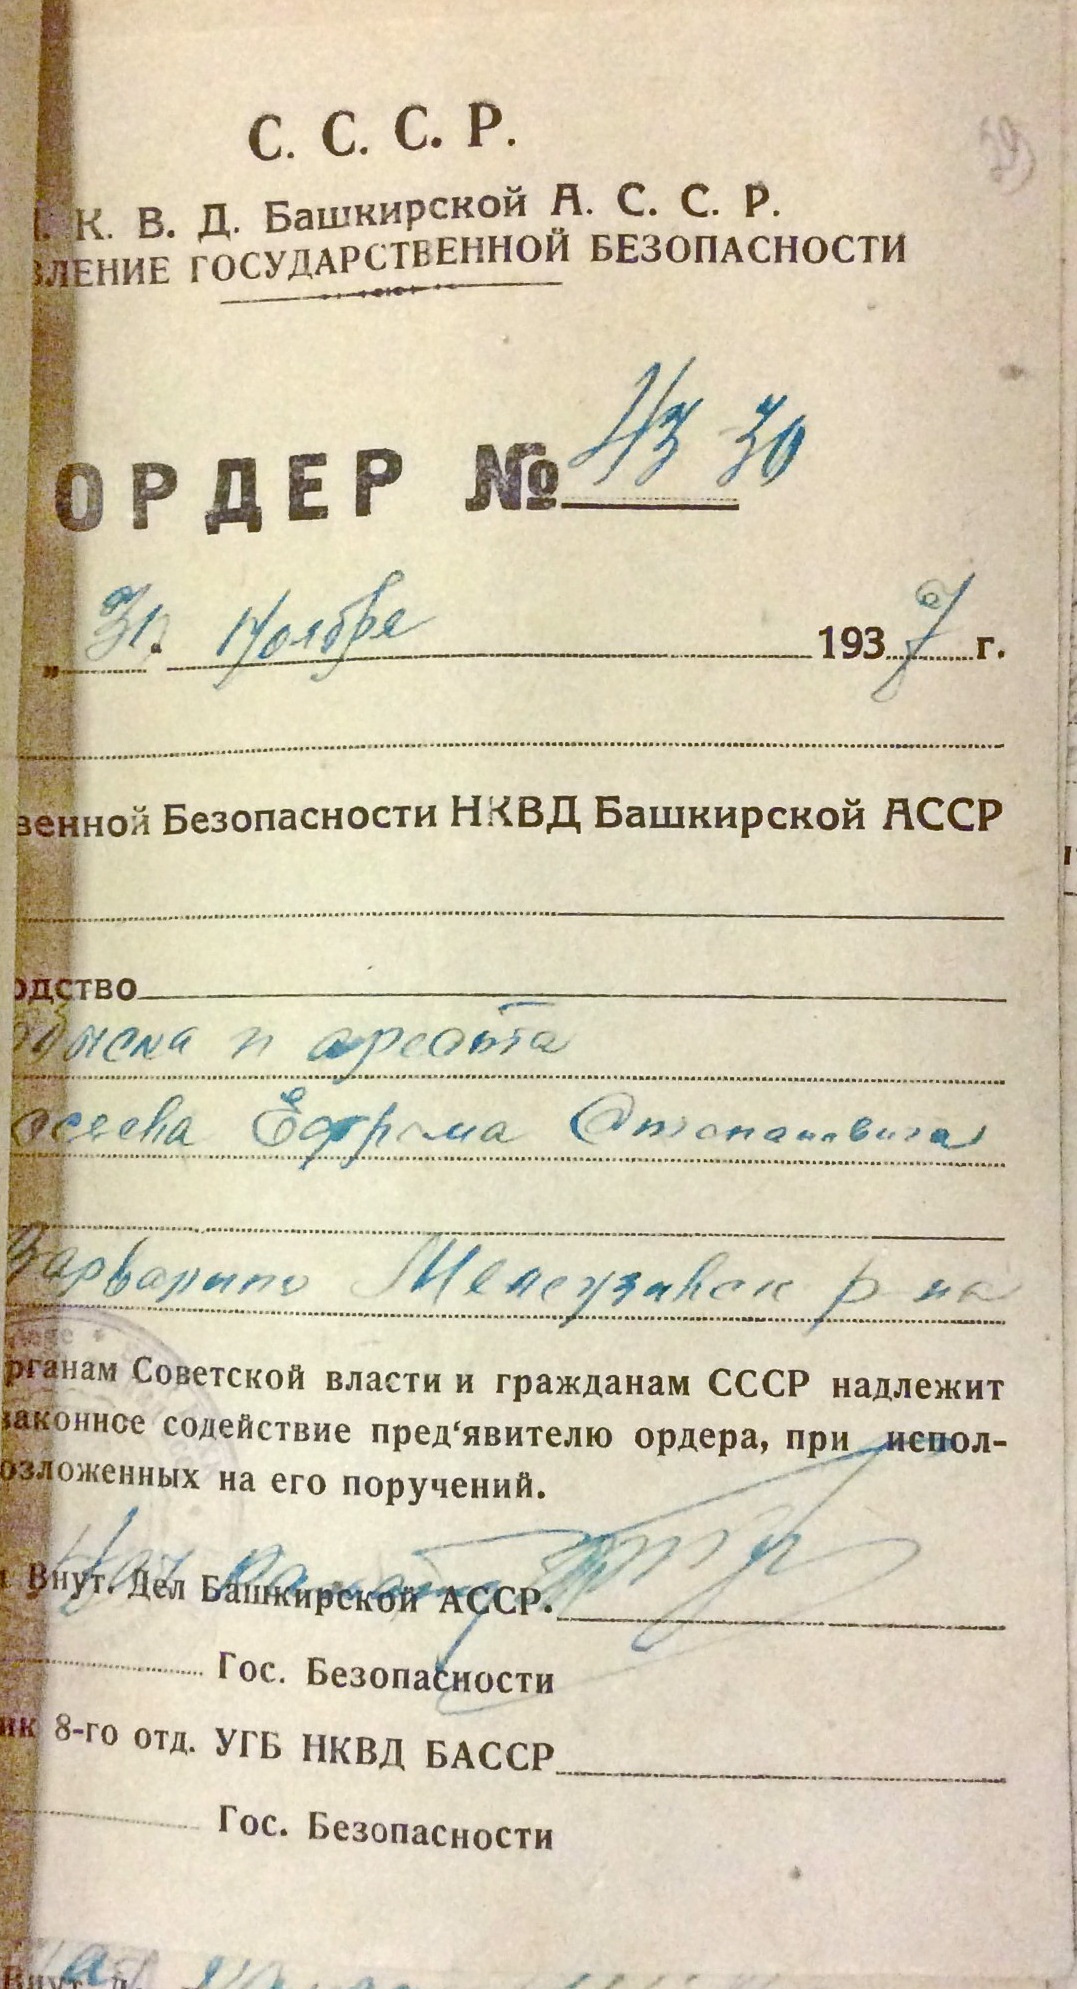 С. С. С. Р.
К. В. Д. Башкирской А. С. С. Р.
ВЛЕНИЕ ГОСУДАРСТВЕННОЙ БЕЗОПАСНОСТИ
ОРДЕР № 4330
„ 31. Ноября 1937 г.
венной Безопасности НКВД Башкирской АССР
одство
обыска и ареста
Ефрема Степановича
Варварино Мелеузовск р на
рганам Советской власти и гражданам СССР надлежит
законное содействие пред‘явителю ордера, при испол-
озложенных на его поручений.
Внут. Дел Башкирской АССР.
Гос. Безопасности
ик 8-го отд. УГБ НКВД БАССР
Гос. Безопасности
Внут.